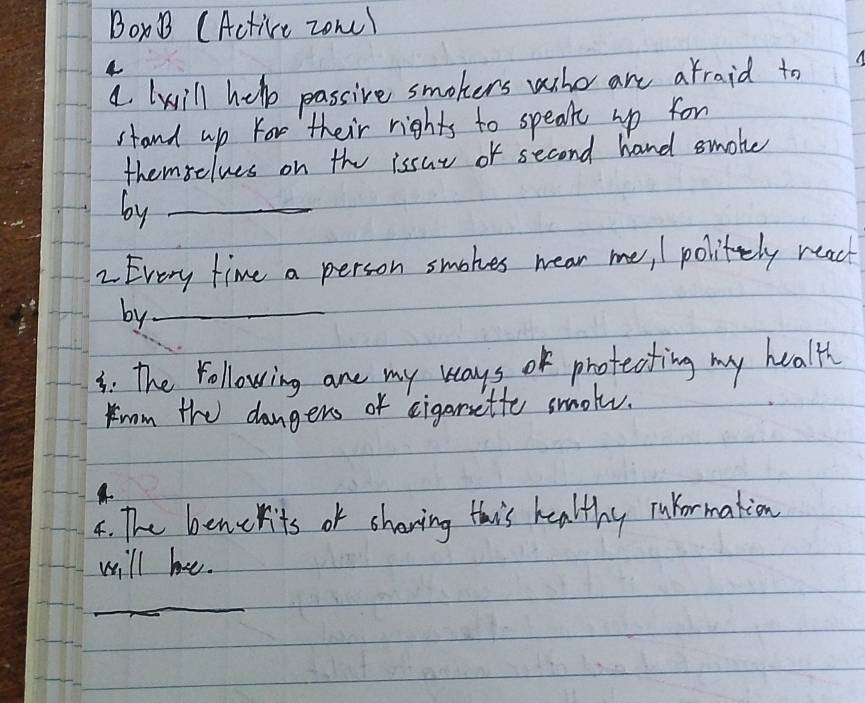 Box B (Active zone)
1. I will help passive smokers who are afraid to
stand up for their rights to speak up for
themselves on the issue of second hand smoke
by
2. Every time a person smokes near me, I politely react
by
3. The following are my ways of protecting my health
from the dangers of cigarsette smoke.
4. The benefits of sharing this healthy information
will be.